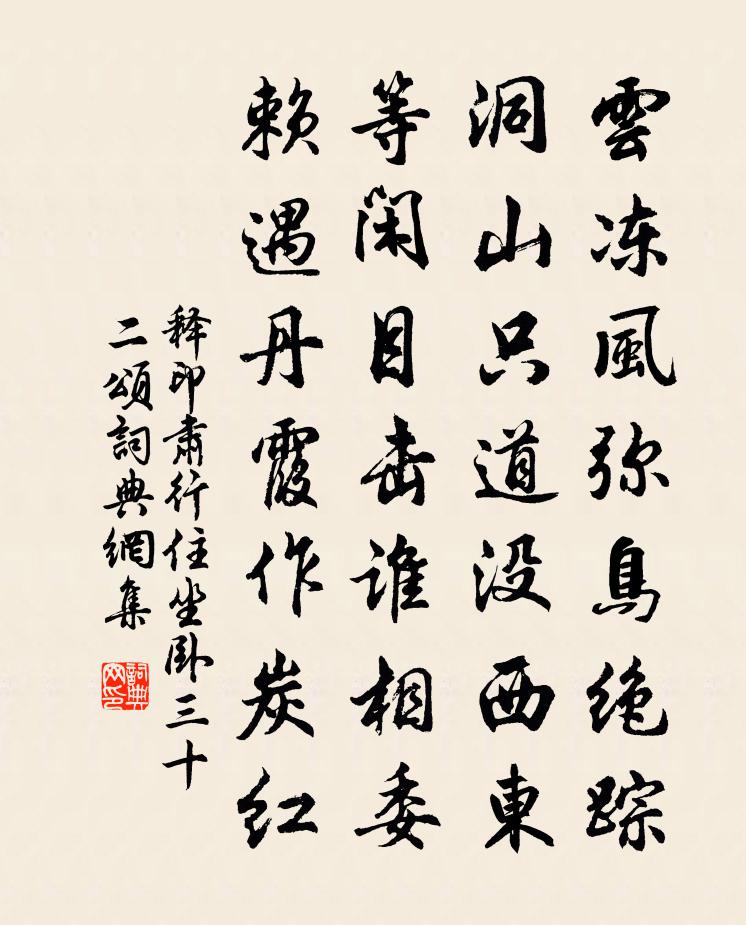 雲冻風弥鳥绝踪
洞山只道没西東
等闲目击谁相委
赖遇丹霞作炭红
释印肃行住坐卧三十
二頌詞典網集
詞典网印